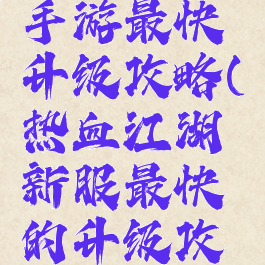 手游最快
升级攻略(
热血江湖
新服最快
的升级攻